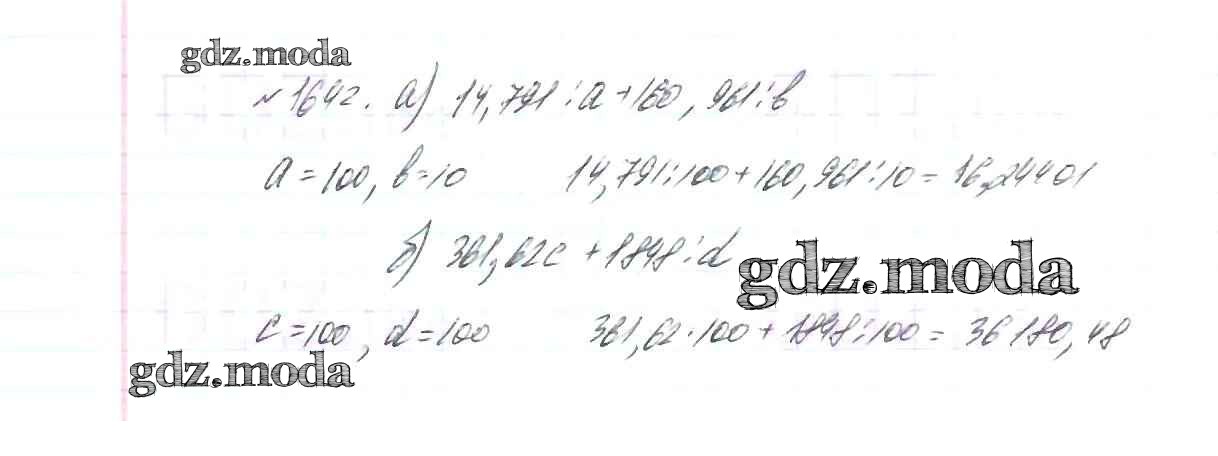 gdz.moda
№ 1642. а) 14,791:a+160,961:b
a=100, b=10 14,791:100+160,961:10=16,24401
б) 361,62c+1848:d
gdz.moda
c=100, d=100 361,62·100+1848:100=36180,48
gdz.moda